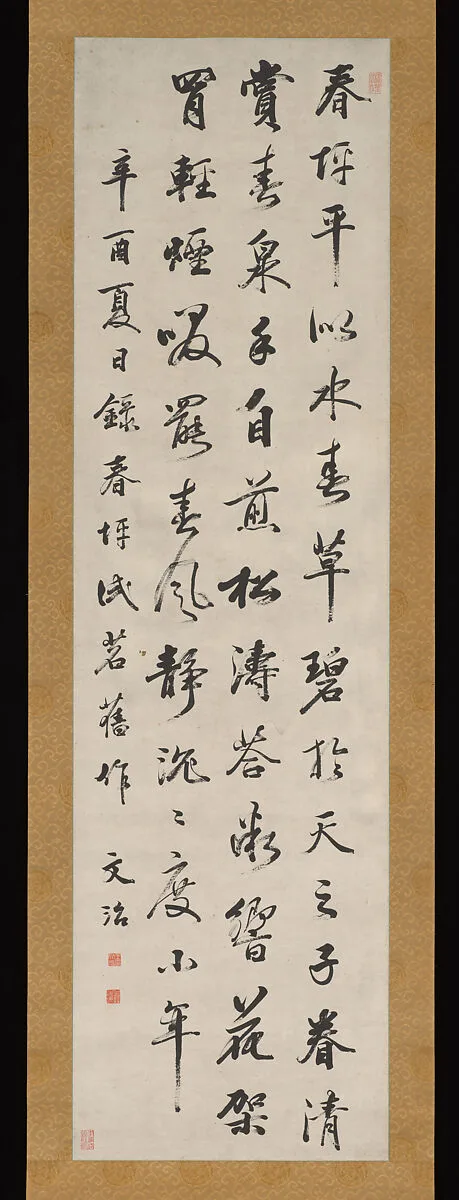 春坪平似水春草碧於天之子眷清
賞春泉手自煎松濤荅漸響花架
罥輕煙啜罷春風靜沉〻度小年
辛酉夏日錄春坪試茗舊作
文治